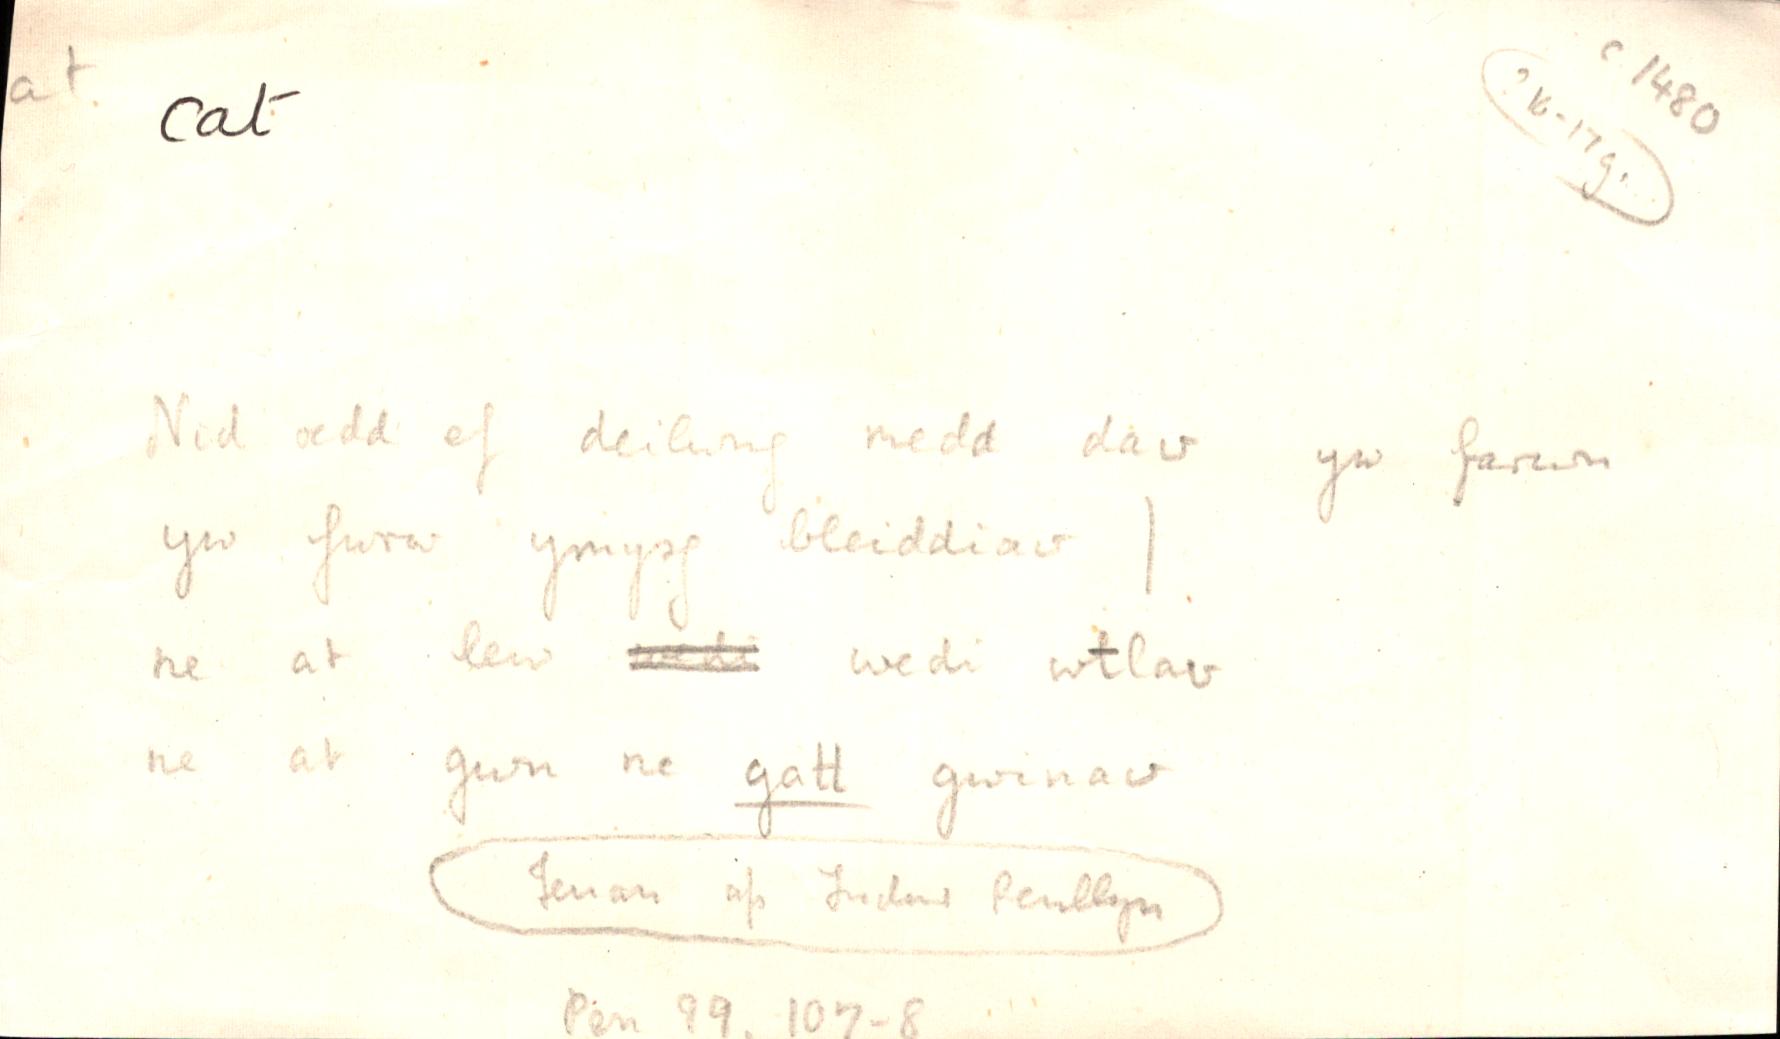 at
cat
c 1480
? 16-17g.
Nid oedd ef deilwng medd dav yw farwn
yw fwrw ymysg bleiddiav |
ne at lew wedi wtlav
ne at gwn ne gatt gwinav
Ieuan ap Tudur Penllyn
Pen 99, 107-8